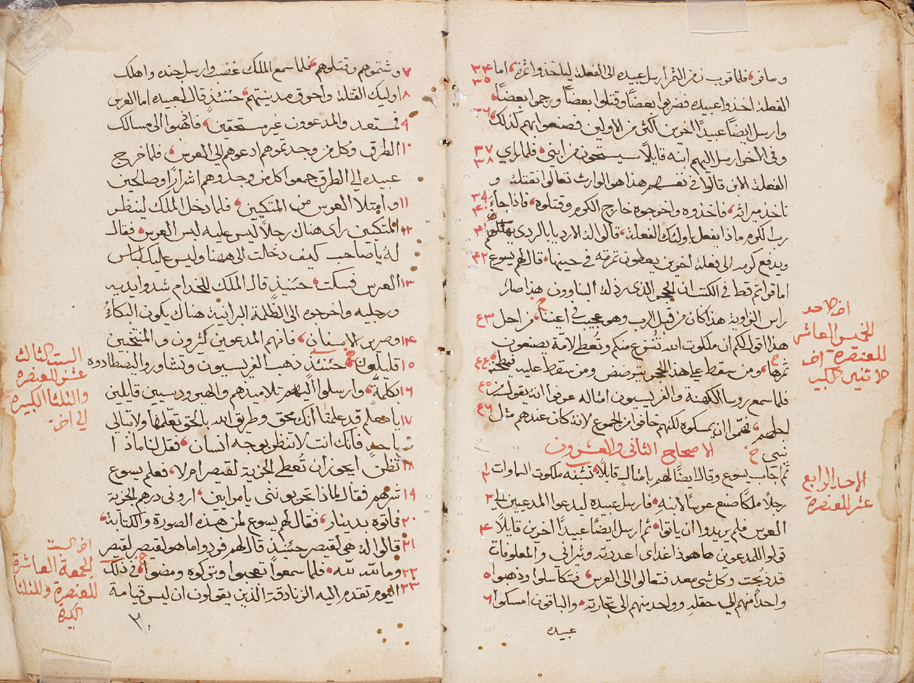 ومافى فلما قرب زمن الثمر ارسل عبيده الى الفعلة لياخذوا ثمرته اما ٣٤ ٣٥
الفعلة اخذوا عبيده فضربوا بعضا وقتلوا بعضا ورجموا بعضا
وارسل ايضا عبيدا اخرين اكثر من الاولين فصنعوا بهم كذلك ٣٦
وفي الاخر ارسل اليهم ابنه قايلا سيستحيون من ابني فلما راى ٣٧ ٣٨
الفعلة الابن قالوا في نفوسهم هذا هو الوارث تعالوا نقتله و
ناخذ ميراثه فاخذوه واخرجوه خارج الكرم وقتلوه فاذا جاء ٣٩ ٤٠
رب الكرم ماذا يفعل اوليك الفعلة قالوا له الارديا بالردي يهلكهم ٤١
ويدفع كرمه الى فعلة اخرين يعطون ثمرته في حينها قال لهم يسوع ٤٢
اما قراتم قط في الكتب ان الحجر الذي رذله البناوون هذا صار
راس الزاوية هذا كان من قبل الرب وهو عجيب في اعيننا من اجل ٤٣
هذا اقول لكم ان ملكوت الله تنزع منكم وتعطى لامة يصنعون
ثمرتها ومن سقط على هذا الحجر يترضض ومن سقط عليه طحنه ٤٤
فلما سمع روسا الكهنة والفريسيون امثاله عرفوا انه يقول من ٤٥
اجلهم فهموا ان يمسكوه لكنهم خافوا من الجموع لانه كان عندهم مثل ٤٦
نبي
الاصحاح الثاني والعشرون
ثم اجاب يسوع وقال ايضا لهم بامثال قايلا تشبه ملكوت السماوات
رجلا ملكا صنع عرسا لابنه فارسل عبيده ليدعوا المدعوين الى ٣
العرس فلم يريدوا ان ياتوا ثم ارسل ايضا عبيدا اخرين قايلا ٤
قولوا للمدعوين ها هوذا غداي اعددته وثيراني والمعلوفات
قد ذبحت وكل شي معد فتعالوا الى العرس فتكاسلوا وذهبوا ٥
واحدا منهم الى حقله وواحد منهم الى تجارته والباقون امسكوا ٦
عبيده
اخر الاحد
الخميس العاشر
للعنصرة اخر
الاثنين الكبير
الاحد الرابع
عشر للعنصرة
٧ وشتموهم وقتلوهم فلما سمع الملك غضب وارسل جنده واهلك
٨ اوليك القتلة واحرق مدينتهم حينئذ قال لعبيده اما العرس
٩ فمستعد والمدعوون غير مستحقين فاذهبوا الى مسالك
١٠ الطرق وكل من وجدتموهم ادعوهم الى العرس فلما خرج
عبيده الى الطرق جمعوا كل من وجدوهم اشرارا وصالحين
١١ وامتلا العرس من المتكين فلما دخل الملك لينظر
١٢ المتكين راى هناك رجلا ليس عليه لبس العرس فقال
له يا صاحب كيف دخلت الى ههنا وليس عليك لباس
١٣ العرس فسكت حينئذ قال الملك للخدام شدوا يديه
ورجليه واخرجوه الى الظلمة البرانية هناك يكون البكاء
١٤ وصرير الاسنان فانهم المدعيين كثيرون والمنتخبين
١٥ قليلون حينئذ ذهب الفريسيون وتشاوروا ليصطادوه
١٦ بكلمة وارسلوا اليه تلاميذهم والهيرودسيين قايلين
١٧ يا معلم قد علمنا انك محق وطريق الله بالحق تعلمها ولا تبالي
باحد فانك انت لا تنظر بوجه انسان فقل لنا ماذا
١٨ تظن ايجوز ان تعطى الجزية لقيصر ام لا فعلم يسوع
١٩ شرهم فقال لماذا تجربونني يا مراين اروني درهم الجزية
٢٠ فاتوه بدينار فقال لهم يسوع لمن هذه الصورة والكتابة
٢١ قالوا له هي لقيصر حينئذ قال لهم فردوا ما هو لقيصر لقيصر
٢٢ وما لله لله فلما سمعوا تعجبوا وتركوه ومضوا في ذلك
٢٣ اليوم تقدم اليه الزنادقة الذين يقولون ان ليس قيامة
السبت الثالث
عشر للعنصرة
والثلثا الكبيرة
الى اخره
اخر السبت
الجمعة العاشرة
للعنصرة وللثلثا
الكبيرة